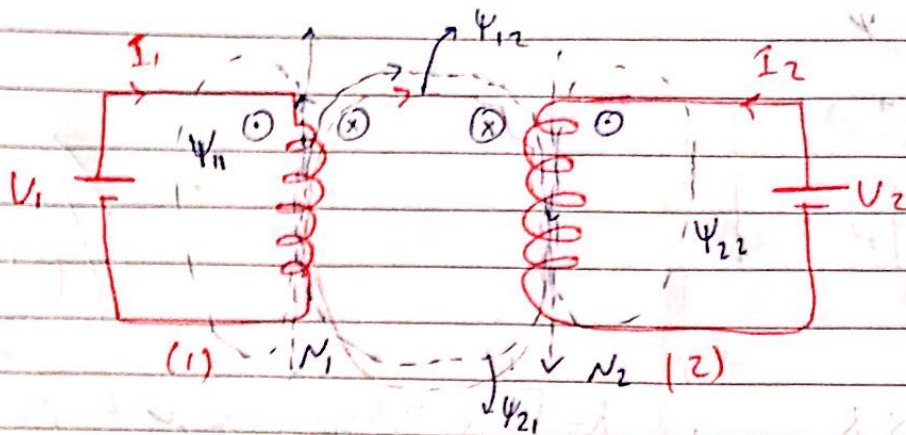 Ψ₁₂
I₁
I₂
Ψ₁₁
V₁
V₂
Ψ₂₂
(1)
N₁
N₂
(2)
Ψ₂₁